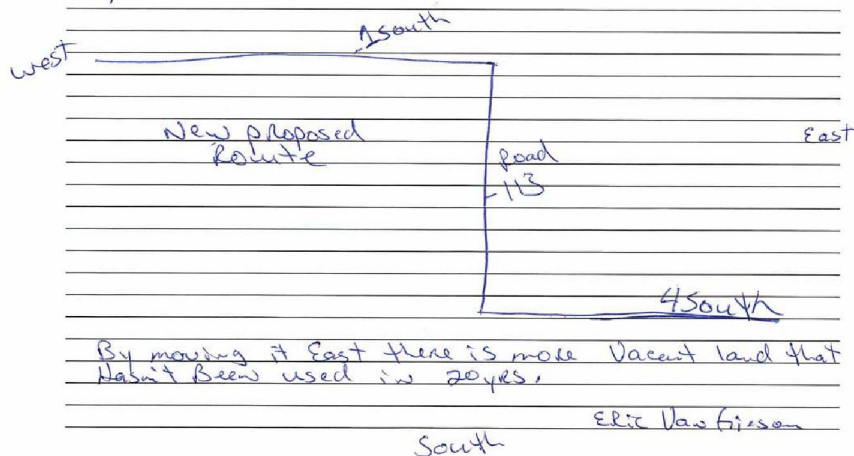 1 South
West
New proposed
Route
East
Road
113
4 South
By moving it East there is more Vacant land that
Hasn't Been used in 20 yrs.
Eric
South